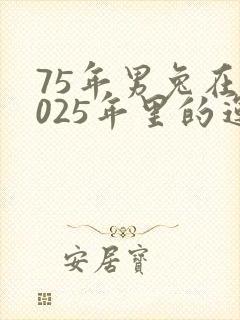 75年男兔在
025年里的运
安居寶